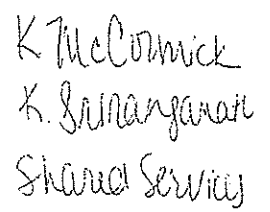 K McCormick
K. Sriranganan
Shared Services